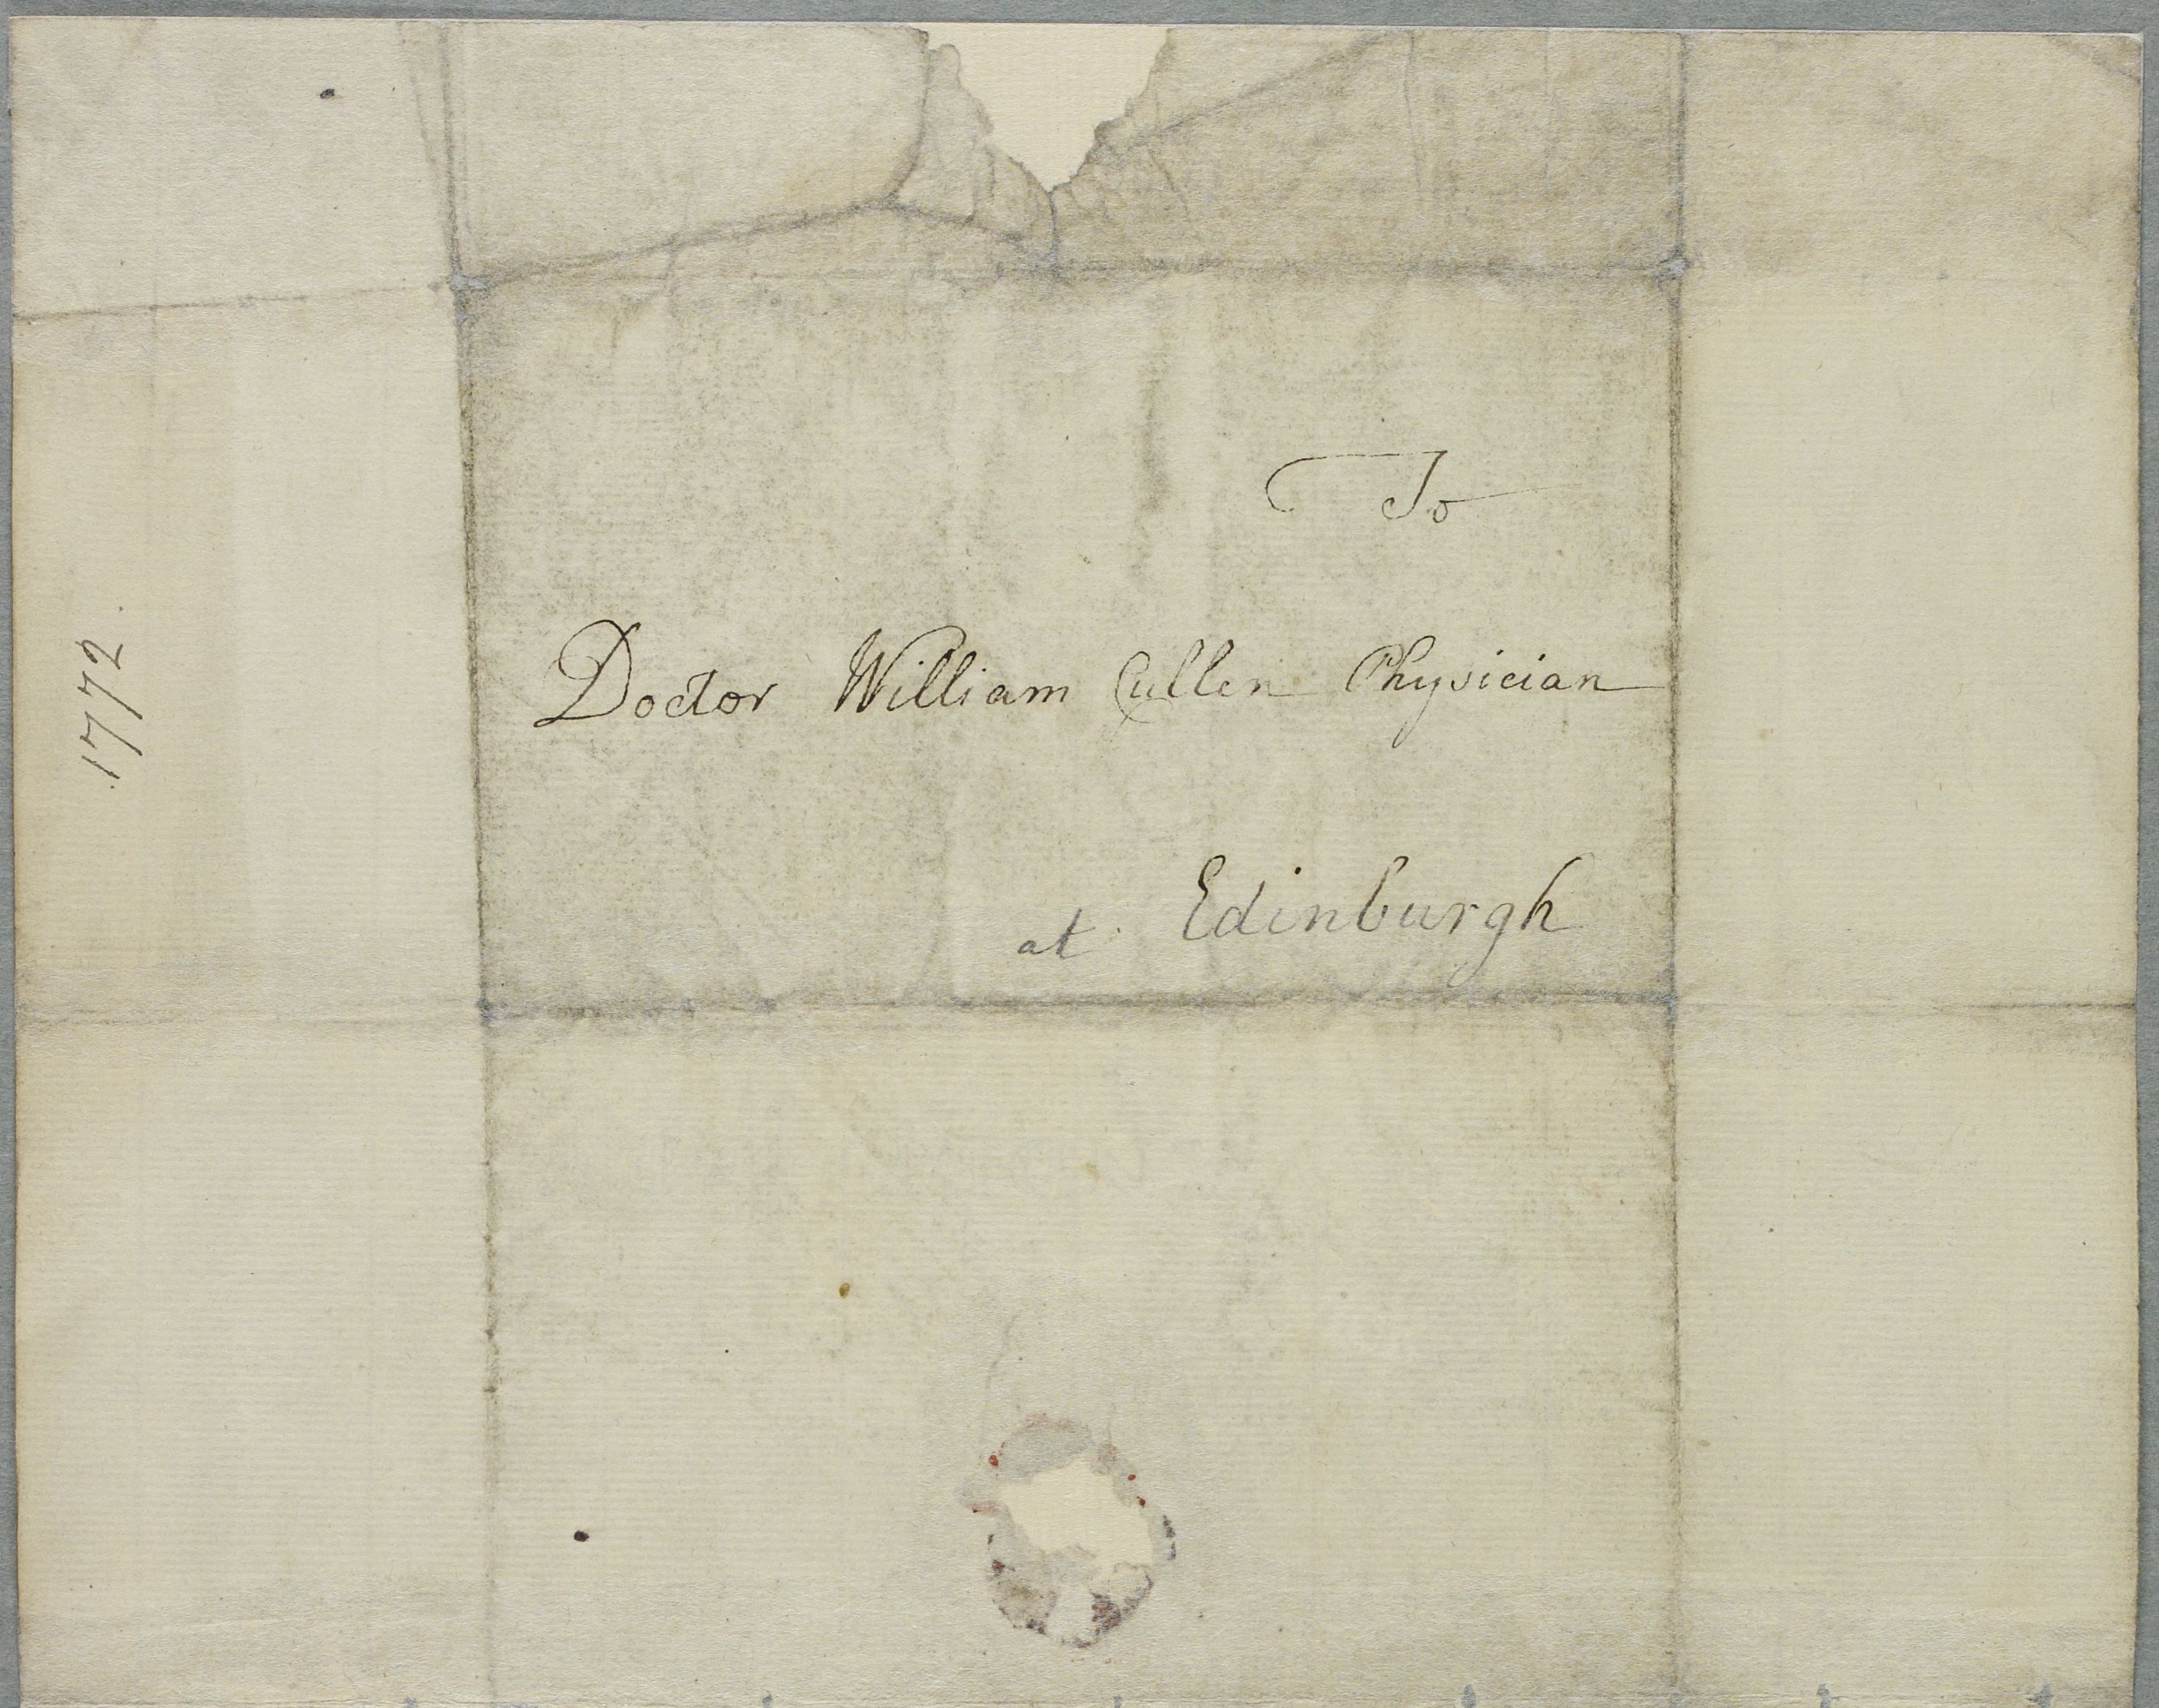 To
Doctor William Cullen Physician
at Edinburgh
1772.